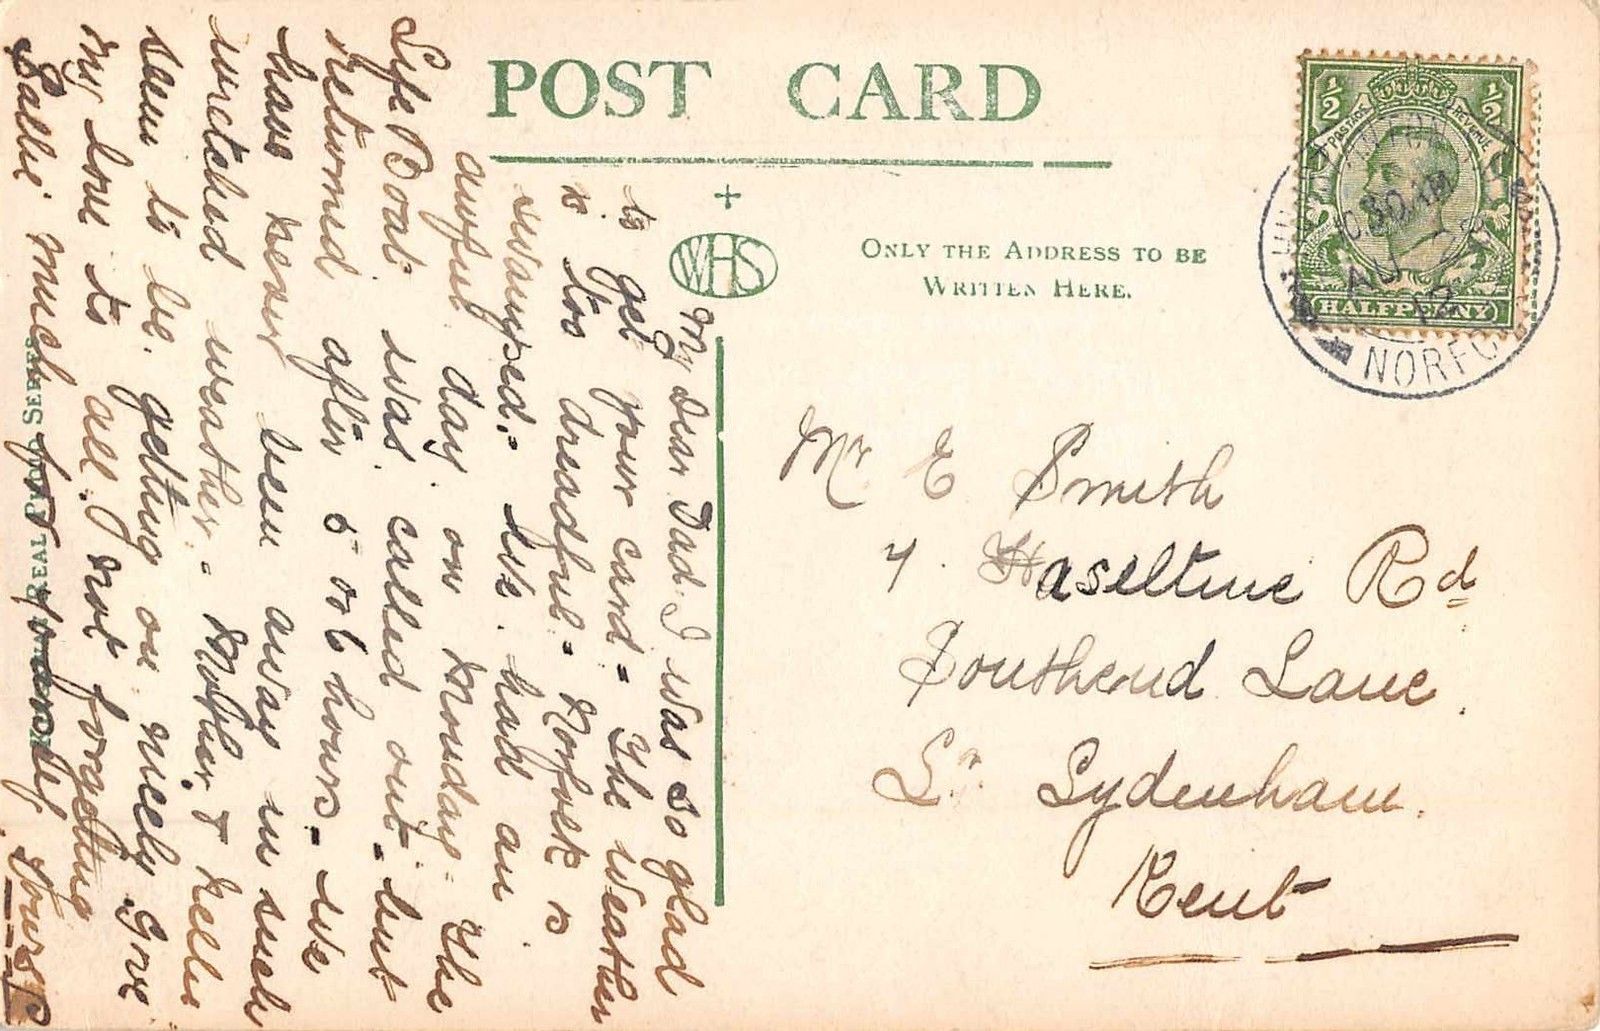 POST CARD
WHS
ONLY THE ADDRESS TO BE
WRITTEN HERE.
½ ½
POSTAGE REVENUE
HALFPENNY
10.30 AM
AU
12
NORFO
KINGSWAY REAL PHOTO SERIES
My Dear Dad. I was so glad
to get your card - The weather
is too dreadful - Norfolk is
swamped - We had an
awful day on Monday - The
Life Boat was called out - but
returned after 5 or 6 hours - We
have never been away in such
wretched weather - Mother & Nellie
seem to be getting on nicely Give
my love to all. not forgetting
Sallie much for yourself. Yours
Mr E Smith
7. Haseltine Rd
Southend Lane.
Lr Sydenham.
Kent